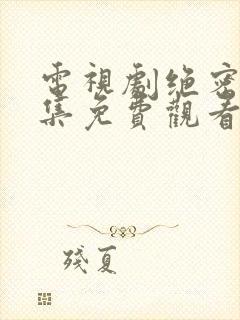 電視劇绝密
集免費觀看
殘夏